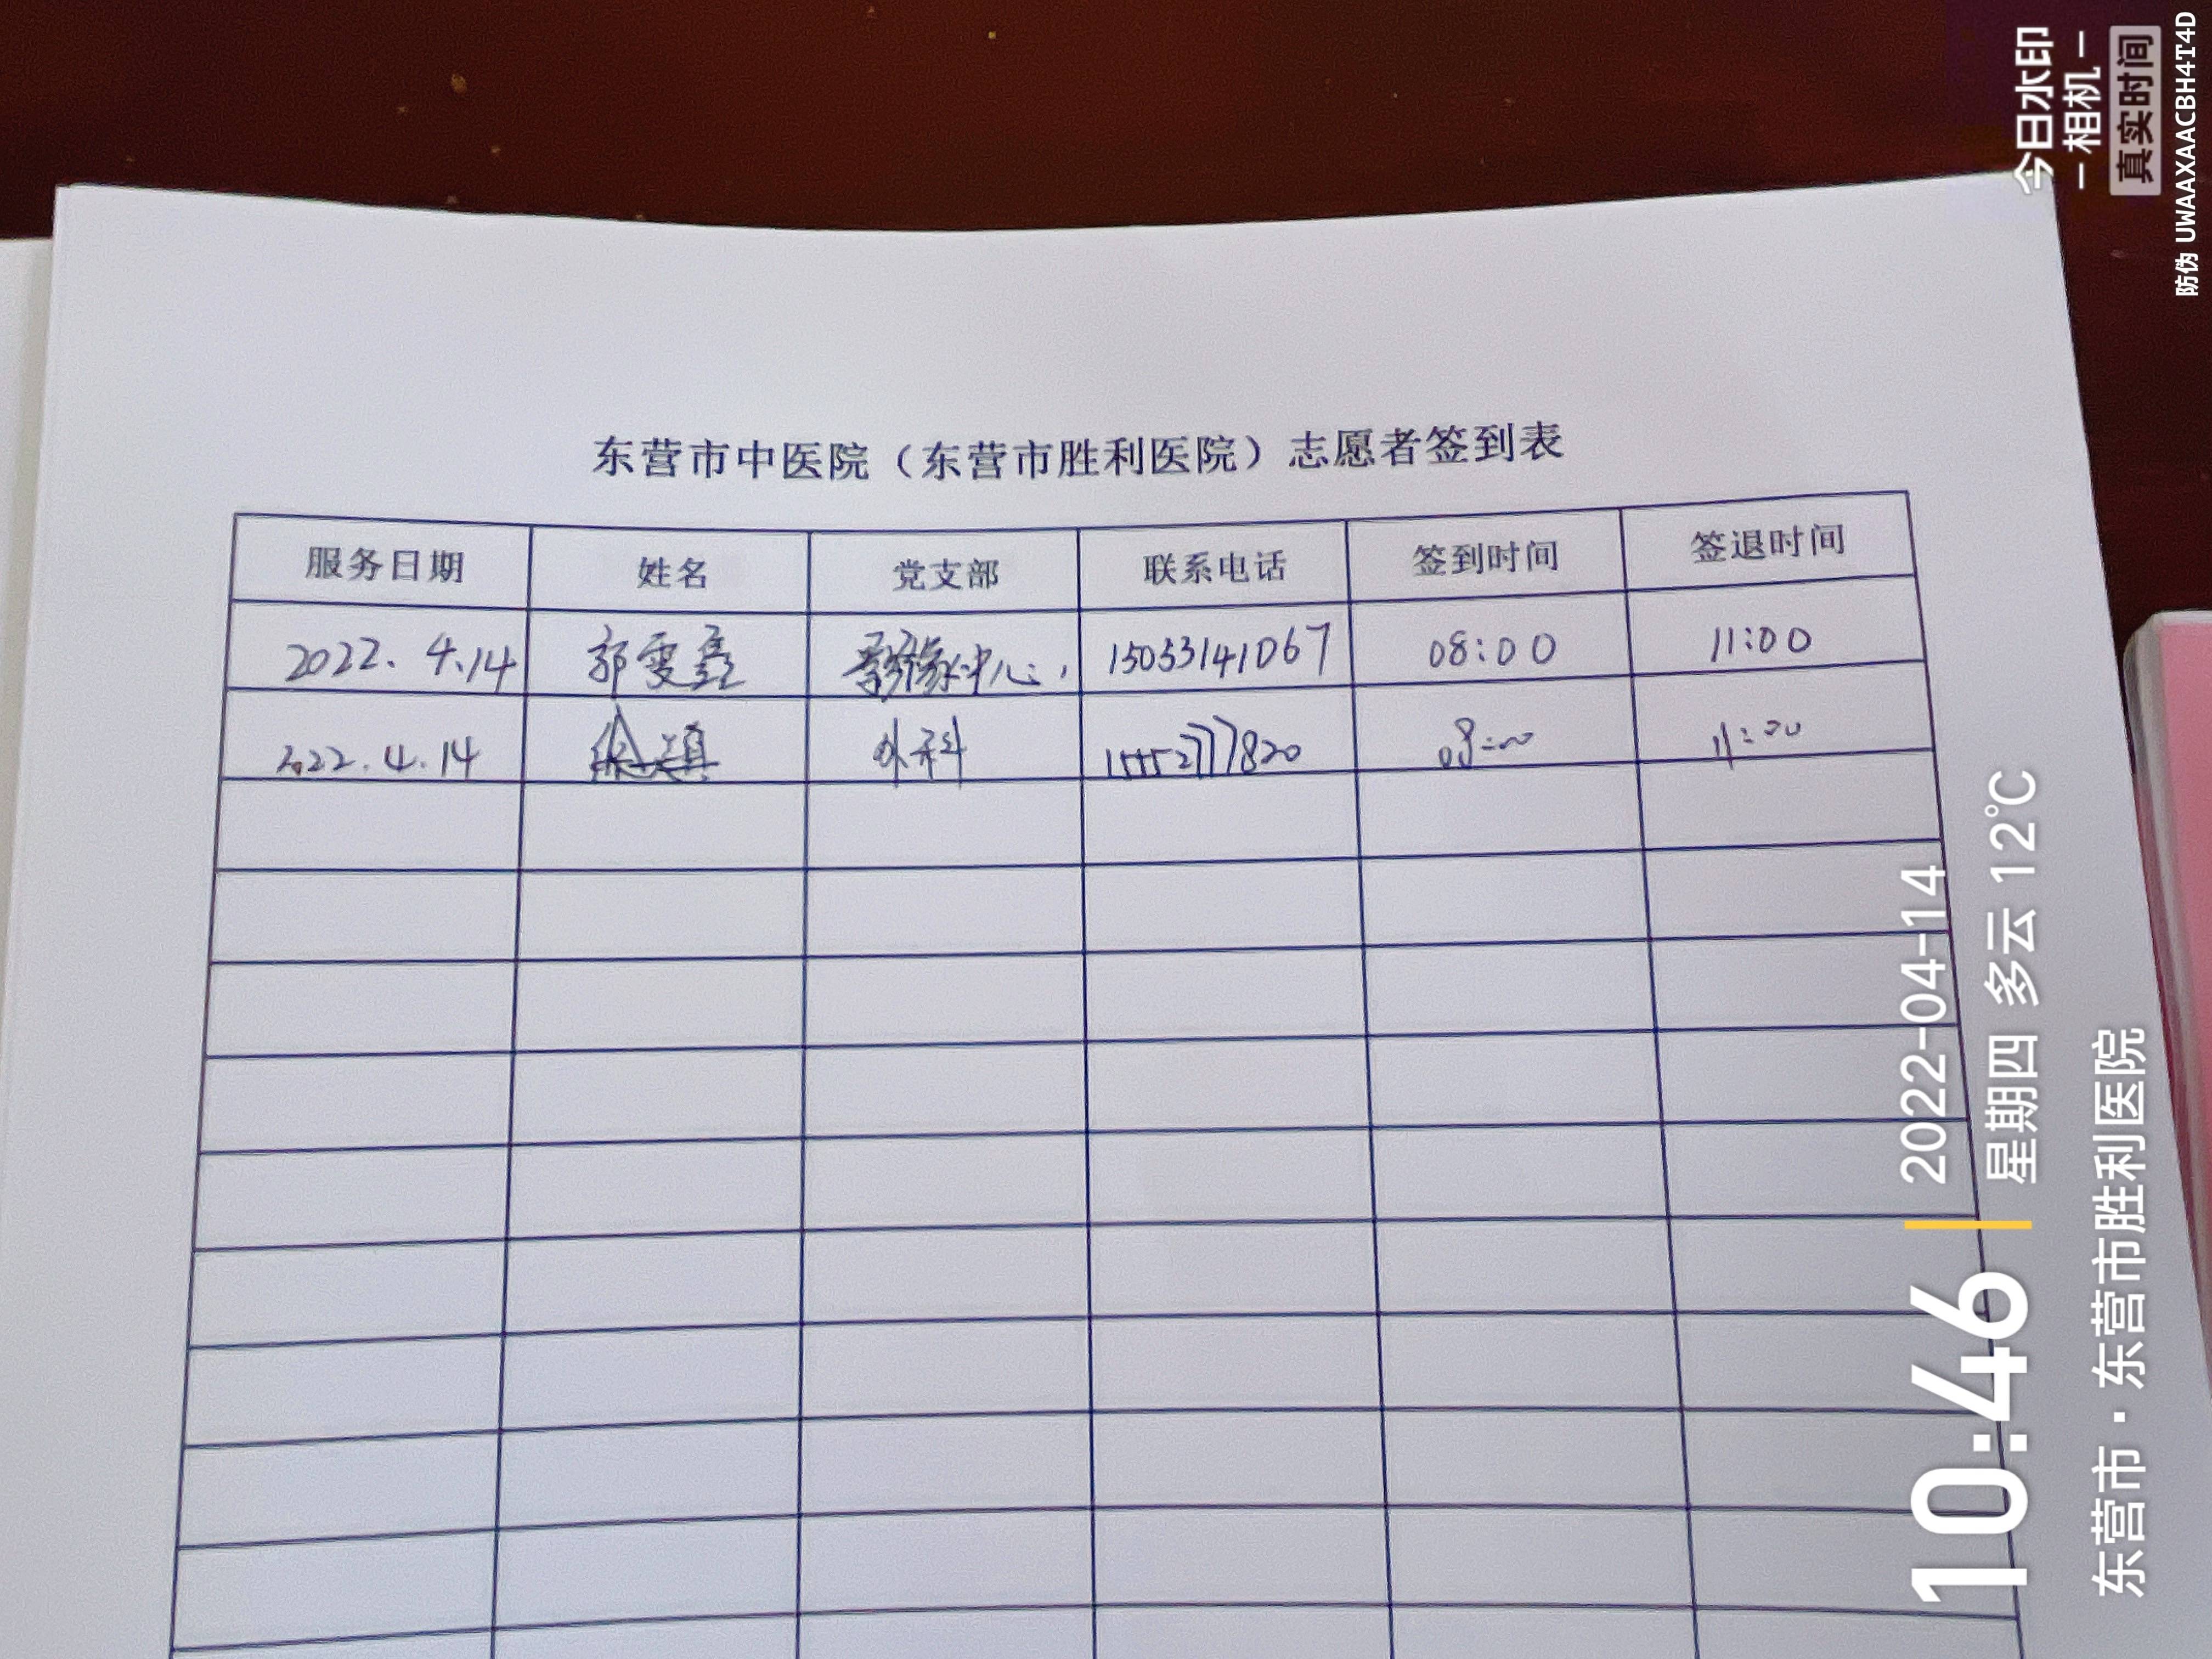 东营市中医院（东营市胜利医院）志愿者签到表
服务日期 姓名 党支部 联系电话 签到时间 签退时间
2022.4.14 郭雯鑫 影像中心 15053141067 08:00 11:00
2022.4.14 外科 15552777820 08:00 11:00
今日水印
相机
真实时间
防伪 UWAAXAACBH4T4D
10:46
2022-04-14
星期四 多云 12℃
东营市·东营市胜利医院